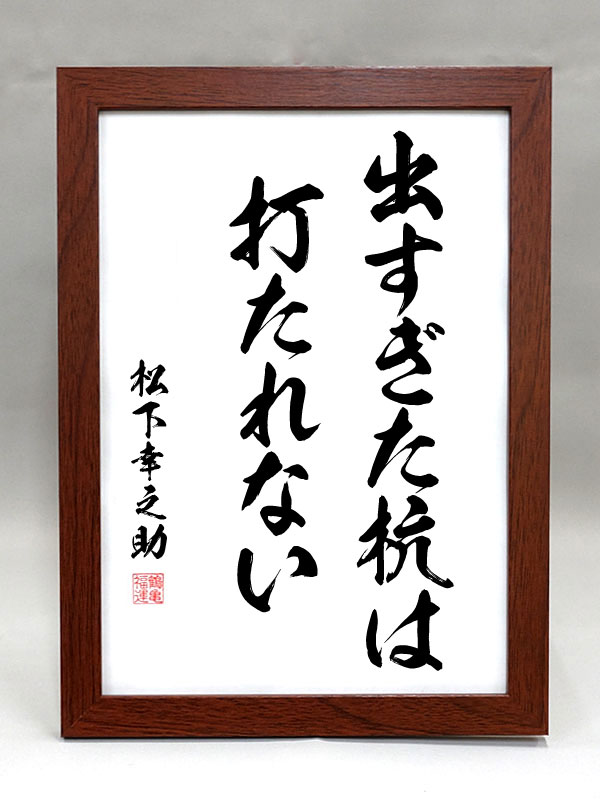 出すぎた杭は
打たれない
松下幸之助
鶴亀
福運